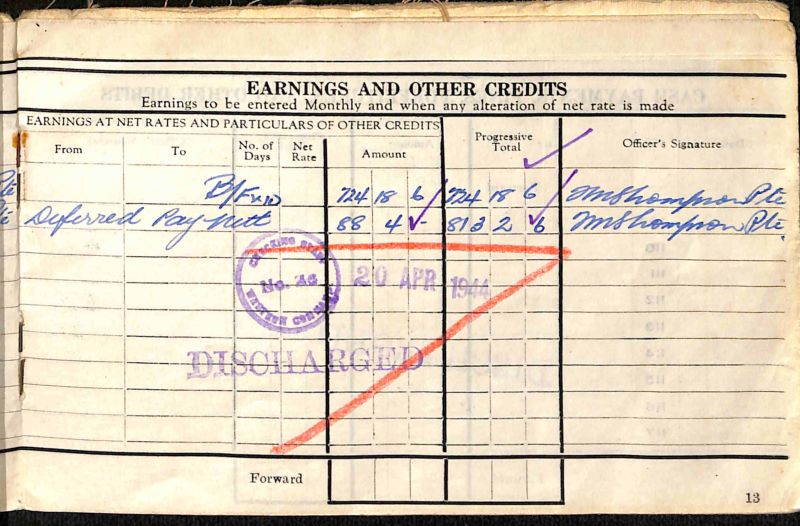 EARNINGS AND OTHER CREDITS
Earnings to be entered Monthly and when any alteration of net rate is made
EARNINGS AT NET RATES AND PARTICULARS OF OTHER CREDITS
From To No. of Days Net Rate Amount Progressive Total Officer's Signature
B/Fwd 724 18 6 724 18 6 Thompson Pte
Deferred Pay 88 4 - 813 2 6 Thompson Pte.
CHECKING STAFF
No. 46
WESTERN COMMAND
20 APR 1944
DISCHARGED
Forward
13